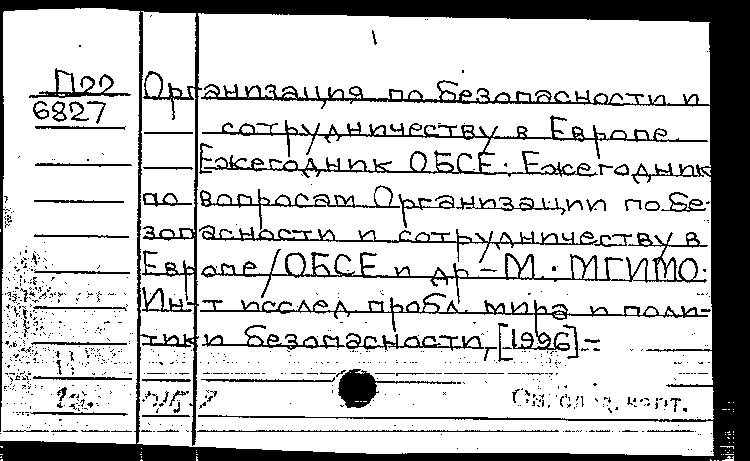 П22
6827
Организация по безопасности и
сотрудничеству в Европе.
Ежегодник ОБСЕ: Ежегодник
по вопросам Организации по бе-
зопасности и сотрудничеству в
Европе/ОБСЕ и др.-М.: МГИМО:
Ин-т исслед. пробл. мира и поли-
тики безопасности, [1996]-
См. след. карт.